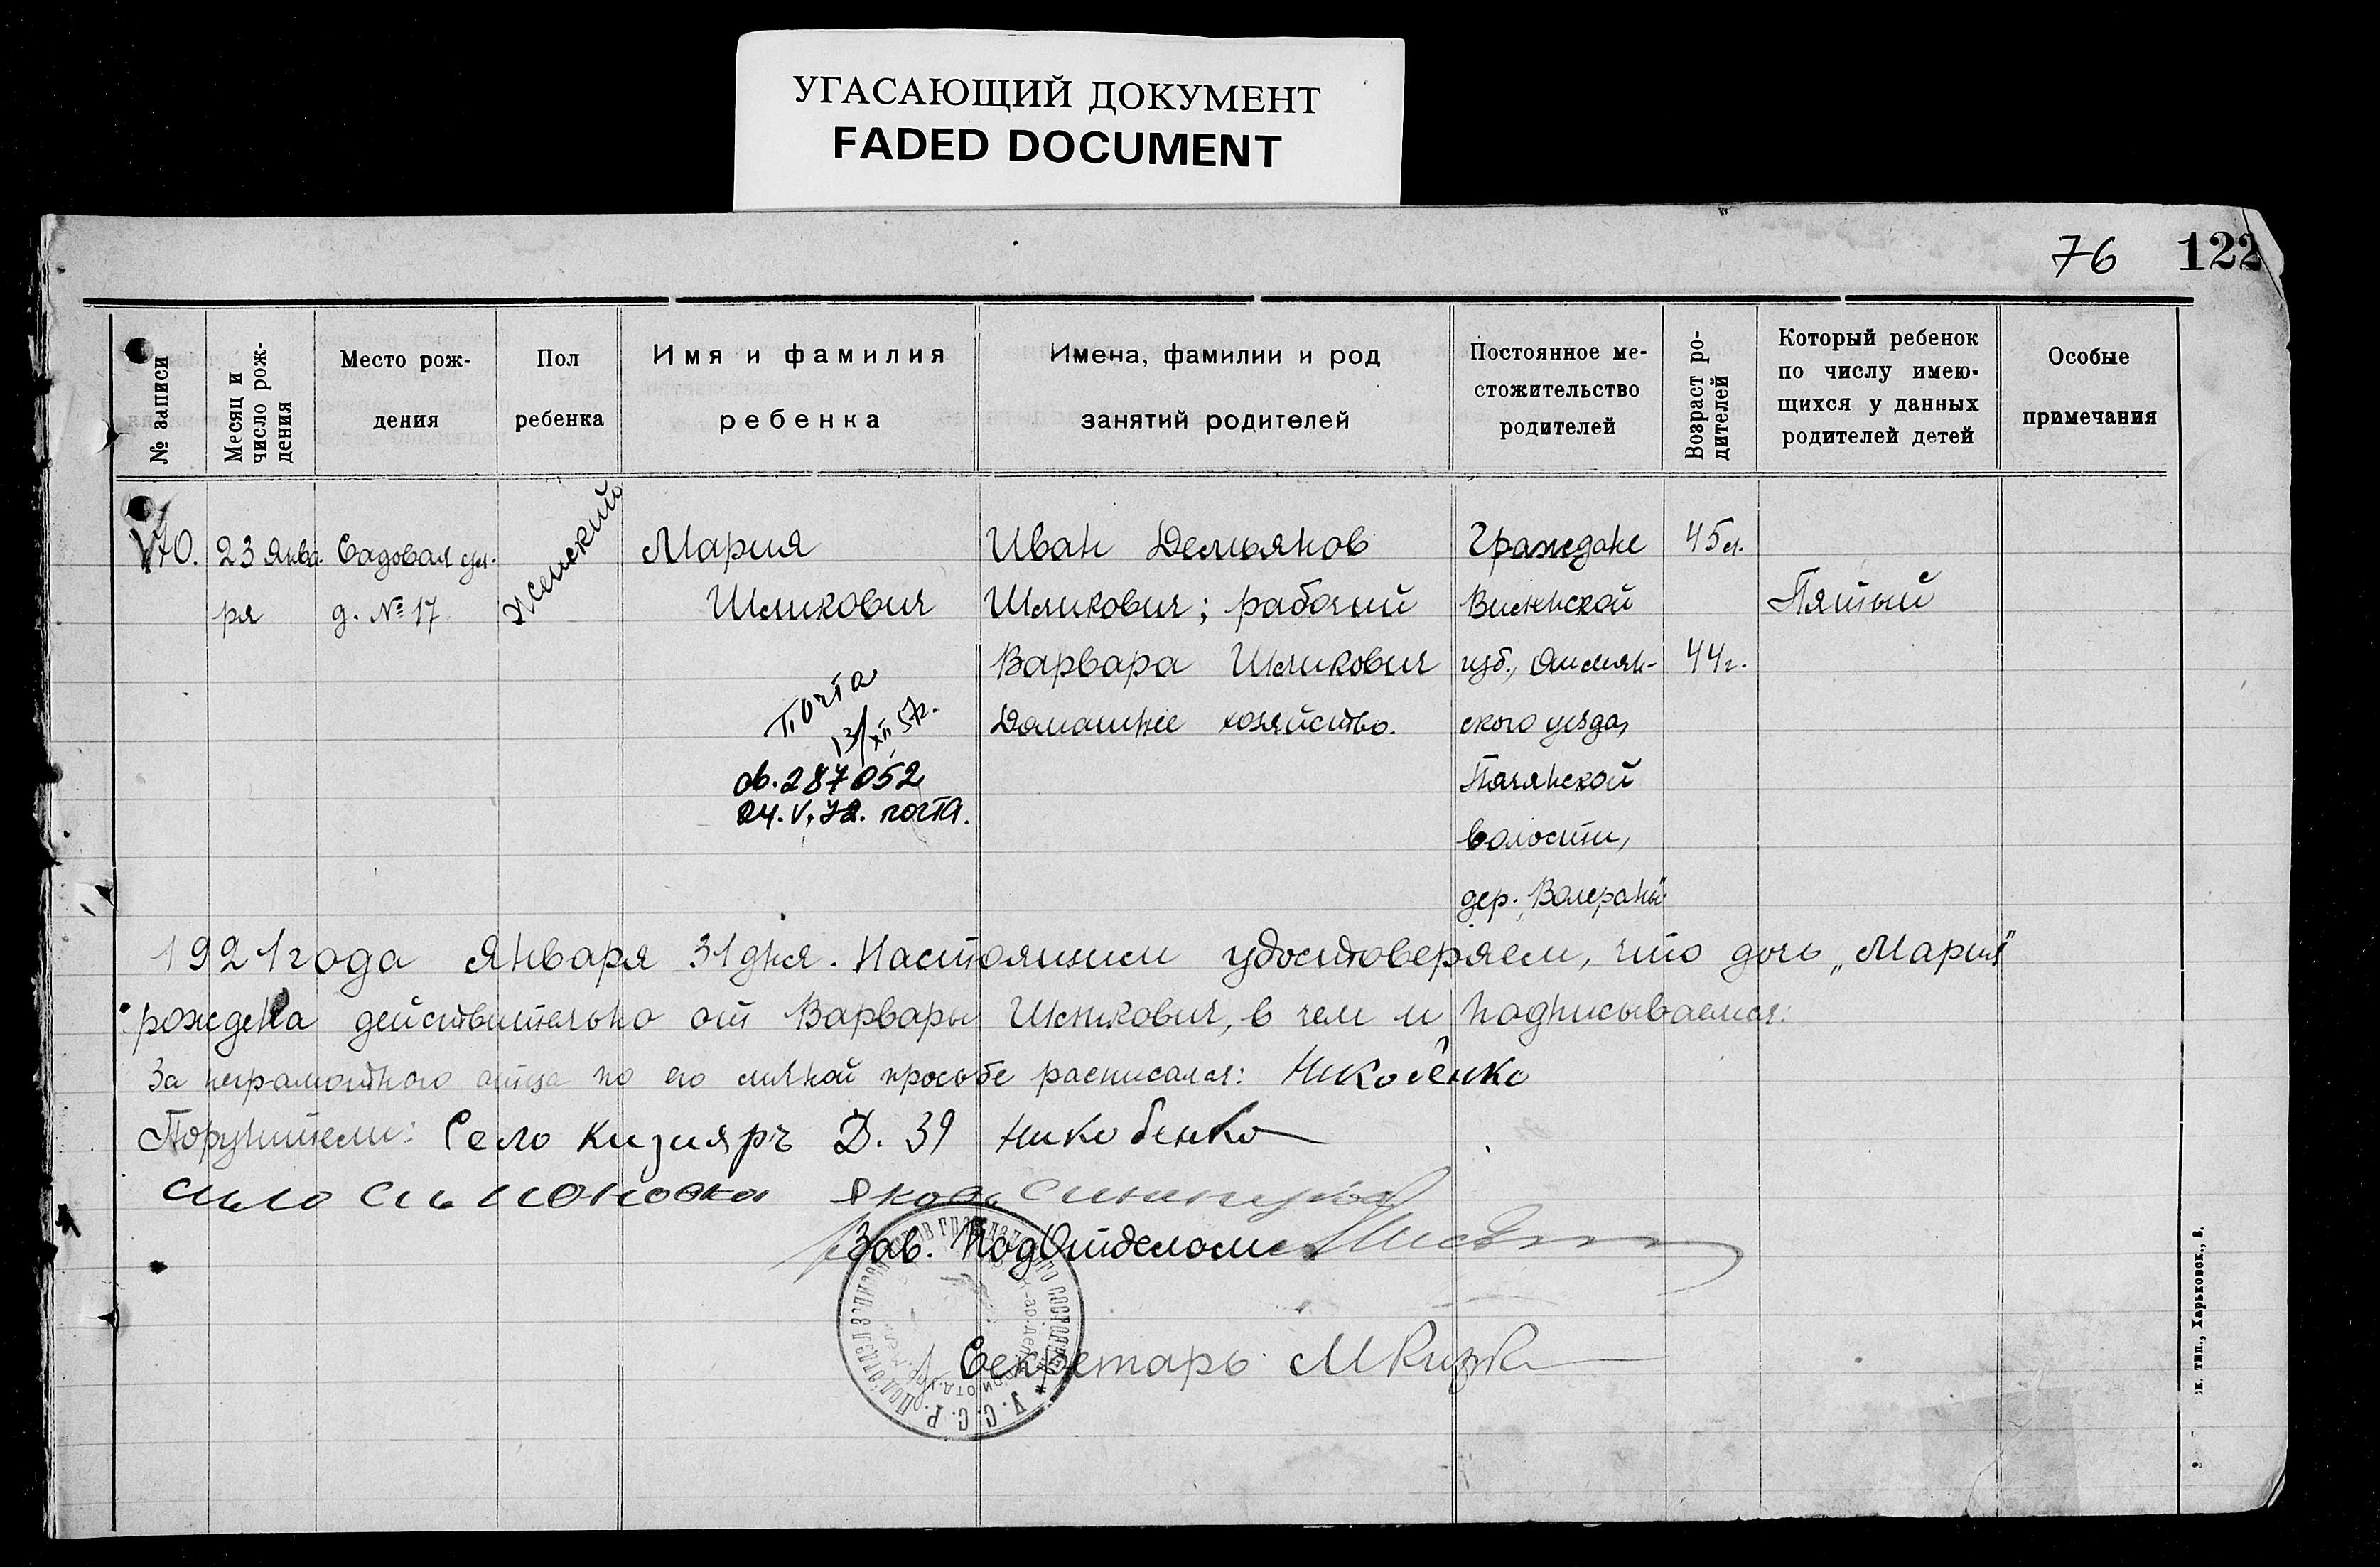 УГАСАЮЩИЙ ДОКУМЕНТ
FADED DOCUMENT
76 122
№ записи
Месяц и число рождения
Место рож-
дения
Пол
ребенка
Имя и фамилия
ребенка
Имена, фамилии и род
занятий родителей
Постоянное ме-
стожительство
родителей
Возраст ро-
дителей
Который ребенок
по числу имею-
щихся у данных
родителей детей
Особые
примечания
70.
23 Янва-
ря
Садовая ул.
д. № 17
Женский
Мария
Шликович
почта
13/XII 57г.
287052
24.V.72. почта.
Иван Демьянов
Шликович; рабочий
Варвара Шликович
Домашнее хозяйство.
Граждане
Виленской
губ., Ошмян-
ского уезда,
волости,
дер.
45 л.
44 г.
Пятый
1921 года Января 31 дня. Настоящим удостоверяем, что дочь „Мария"
рождена действительно от Варвары Шликович, в чем и подписываемся:
За неграмотного отца по его личной просьбе расписался:
Поручители: Село Кизияръ Д. 39
Зав. ПодОтделом
Секретарь
У.С.С.Р.
тип., Харьковск., 8.